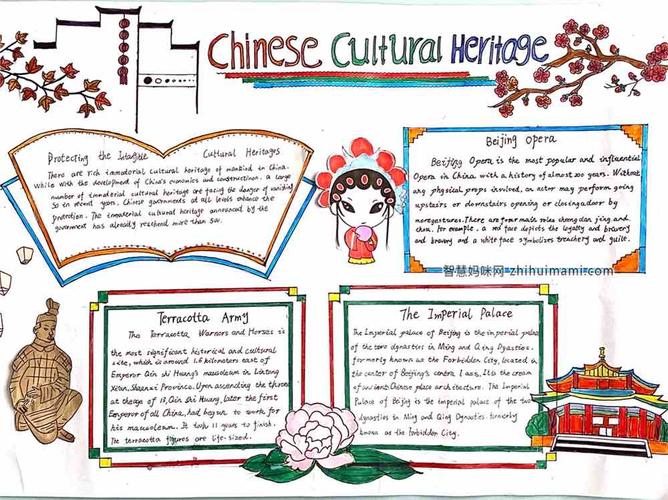 Chinese Cultural Heritage
Protecting the Intangible Cultural Heritages
There are rich immaterial cultural heritage of mankind in China.
while with the development of China's economics and construction, a large
number of immaterial cultural heritage are facing the danger of vanishing
So in recent years, Chinese governments at all levels enhance the
protection. The immaterial cultural heritage announced by the
government has already reachend more than 500.
Beijing Opera
Beijing Opera is the most popular and influential
Opera in China with a history of almost 200 years. Without
any physical props involved, an actor may perform going
upstairs or downstairs opening or closing a door by
mere gestures. There are four main roles sheng dan jing and
chou. For example, a red face depicts the loyalty and bravery
and bravery and a white face symbolizes treachery and guilt.
智慧妈咪网-zhihuimami.com
Terracotta Army
The Terracotta Warriors and Horses is
the most significant historical and cultural
site, which is around 1.6 kilometers east of
Emperor Qin Shi Huang's mausoleum in Lintong
Xi'an, Shaanxi Province. Upon ascending the throne
at the age of 13, Qin Shi Huang, later the first
Emperor of all China, had begun to work for
his mausoleum. It took 11 years to finish.
The terracotta figures are life-sized.
The Imperial Palace
The Imperial palace of Beijing is the imperial palace
of the two dynasties in Ming and Qing Dynasties.
formorly known as the Forbidden City, located in
the center of Beijing's central axis, It is the cream
of ancient Chinese place architecture. The Imperial
Palace of Beijing is the imperial palace of the two
dynasties in Ming and Qing Dynasties. formerly
known as the Forbidden City.